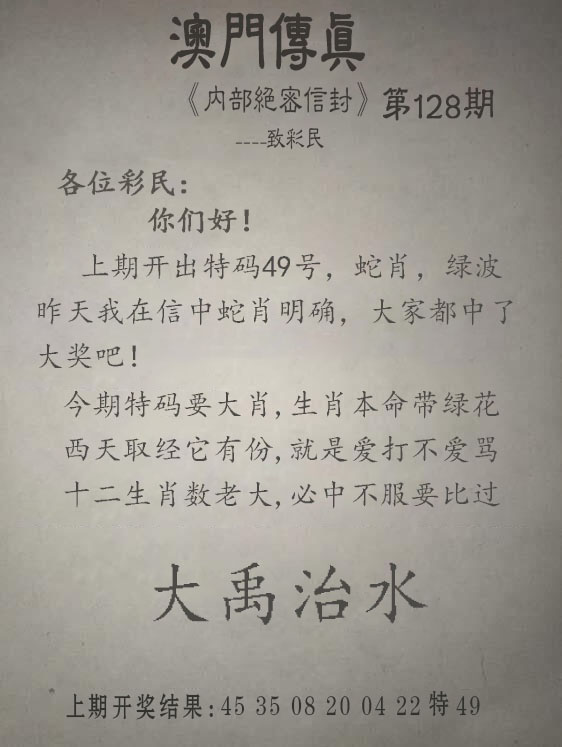 澳門傳眞
《内部絕密信封》第128期
----致彩民
各位彩民：
你们好！
上期开出特码49号，蛇肖，绿波
昨天我在信中蛇肖明确，大家都中了
大奖吧！
今期特码要大肖,生肖本命带绿花
西天取经它有份,就是爱打不爱骂
十二生肖数老大,必中不服要比过
大禹治水
上期开奖结果:45 35 08 20 04 22特49